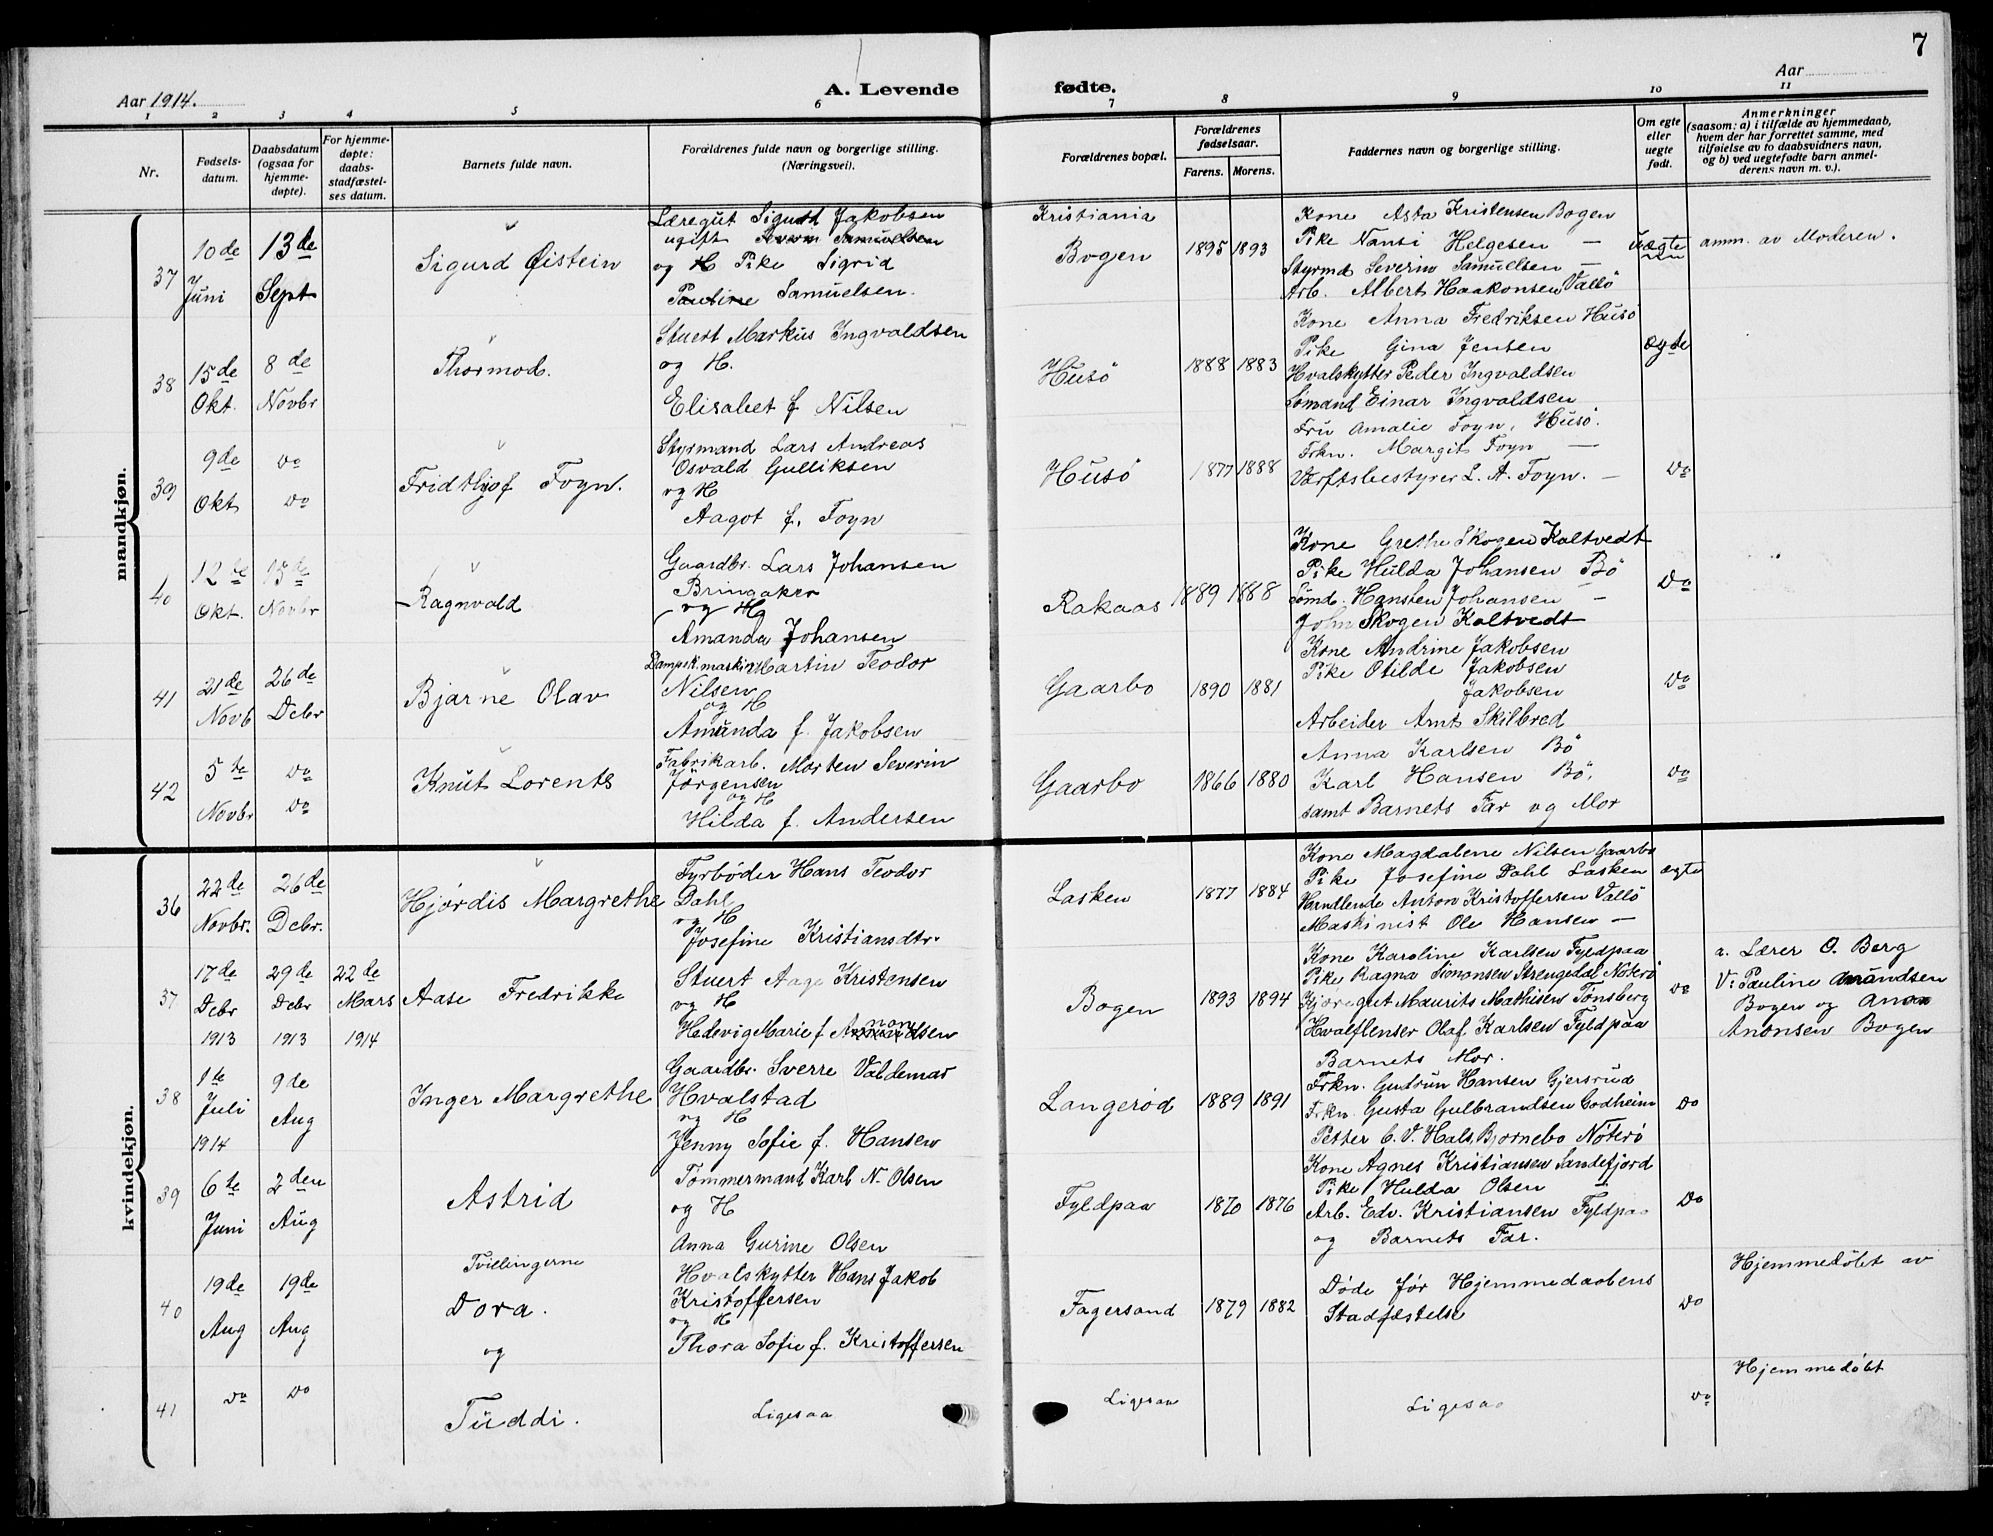 7
Aar 1914.
A. Levende fødte.
Aar
1 2 3 4 5 6 7 8 9 10 11
Nr.
Fødsels-
datum.
Daabsdatum
(ogsaa for
hjemme-
døpte).
For hjemme-
døpte:
daabs-
stadfæstel-
ses datum.
Barnets fulde navn.
Forældrenes fulde navn og borgerlige stilling.
(Næringsvei).
Forældrenes bopæl.
Forældrenes
fødselsaar.
Farens. Morens.
Faddernes navn og borgerlige stilling.
Om egte
eller
uegte
født.
Anmerkninger
(saasom: a) i tilfælde av hjemmedaab,
hvem der har forrettet samme, med
tilføielse av to daabsvidners navn,
og b) ved uegtefødte barn anmel-
derens navn m. v.).
mandkjøn.
37
10de
Juni
13de
Sept
Sigurd Øistein
Læregut Sigurd Jakobsen
ugift Severin Samuelsen
og H Pike Sigrid
Pauline Samuelsen.
Kristiania
Bogen
1895 1893
Kone Asta Kristensen Bogen
Pike Nansi Helgesen —
Styrmd Severin Samuelsen —
Arb. Albert Haakonsen Vallö
Uægte
amm. av Moderen.
38
15de
Okt.
8de
Novbr
Thormod.
Stuert Markus Ingvaldsen
og H.
Elisabet f Nilsen
Husö
1888 1883
Kone Anna Fredriksen Husö
Pike Gina Jensen
Hvalskytter Peder Ingvaldsen
Sømand Einar Ingvaldsen
ægte
39
9de
Okt
do
do
Fridthjof Foyn.
Styrmand Lars Andreas
Osvald Gulliksen
og H
Aagot f. Foyn
Husö
1877 1888
Fru Amalie Foyn, Husö.
Frkn. Margit Foyn —
Værftsbestyrer L. A. Foyn. —
do
40
12te
Okt.
15de
Novbr
Ragnvald
Gaardbr. Lars Johansen
Bringaker
og H
Amanda Johansen
Rakaas
1889 1888
Kone Grethe Skogen Kaltvedt
Pike Hulda Johansen Bö
Sömd. Hansten Johansen —
John Skogen Kaltvedt
do
41
21de
Novb
26de
Debr
Bjarne Olav
Dampsk.maskin Martin Teodor
Nilsen
og H
Amunda f. Jakobsen
Gaarbo
1890 1881
Kone Andrine Jakobsen
Pike Otilde Jakobsen
Jakobsen
Arbeider Arnt Skilbred
do
42
5te
Novbr
do
do
Knut Lorents
Fabrikarb. Morten Severin
Jørgensen
og H
Hilda f. Andersen
Gaarbo
1866 1880
Anna Karlsen Bö
Karl Hansen Bö,
samt Barnets Far og Mor
do
kvindekjøn.
36
22de
Novbr.
26de
Debr.
Hjørdis Margrethe
Fyrbøder Hans Teodor
Dahl
og H
Josefine Kristiansdtr.
Lasken
1877 1884
Kone Magdalene Nilsen Gaarbo
Pike Josefine Dahl Lasken
Handlende Anton Kristoffersen Vallö
Maskinist Ole Hansen —
ægte
37
17de
Debr
1913
29de
Debr
1913
22de
Mars
1914
Aase Fredrikke
Stuert Aage Kristensen
og H
Hedevig Marie f
Bogen
1893 1894
Kone Karoline Karlsen Fyldpaa
Pike Ragna Simonsen Strengedal Nöterö
Kjøregut Maurits Mathisen Tønsberg
Hvalflenser Olaf Karlsen Fyldpaa
Barnets Mor.
do
a. Lærer O. Berg
V: Pauline Amundsen
Bogen og Anna
Anonsen Bogen
38
1te
Juli
1914
9de
Aug
Inger Margrethe
Gaardbr. Sverre Valdemar
Hvalstad
og H
Jenny Sofie f. Hansen
Langerød
1889 1891
Frkn. Gudrun Hansen Gjersrud
Frkn. Gusta Gulbrandsen Godheim
Petter C. V. Hals, Bjornebo Nöterö
do
39
6te
Juni
2den
Aug
Astrid
Tømmermand Karl N. Olsen
og H
Anna Gurine Olsen
Fyldpaa
1870 1876
Kone Agnes Kristiansen Sandefjord
Pike Hulda Olsen —
Arb. Edv. Kristiansen Fyldpaa
og Barnets Far.
do
40
19de
Aug
19de
Aug
Tvillingerne
Dora.
og
Hvalskytter Hans Jakob
Kristoffersen
og H
Thora Sofie f. Kristoffersen
Fagersand
1879 1882
Døde før Hjemmedaabens
Stadfæstelse
do
Hjemmedöbt av
41
do
do
Tuddi.
Ligesaa
Ligesaa
Ligesaa
do
Hjemmedöbt